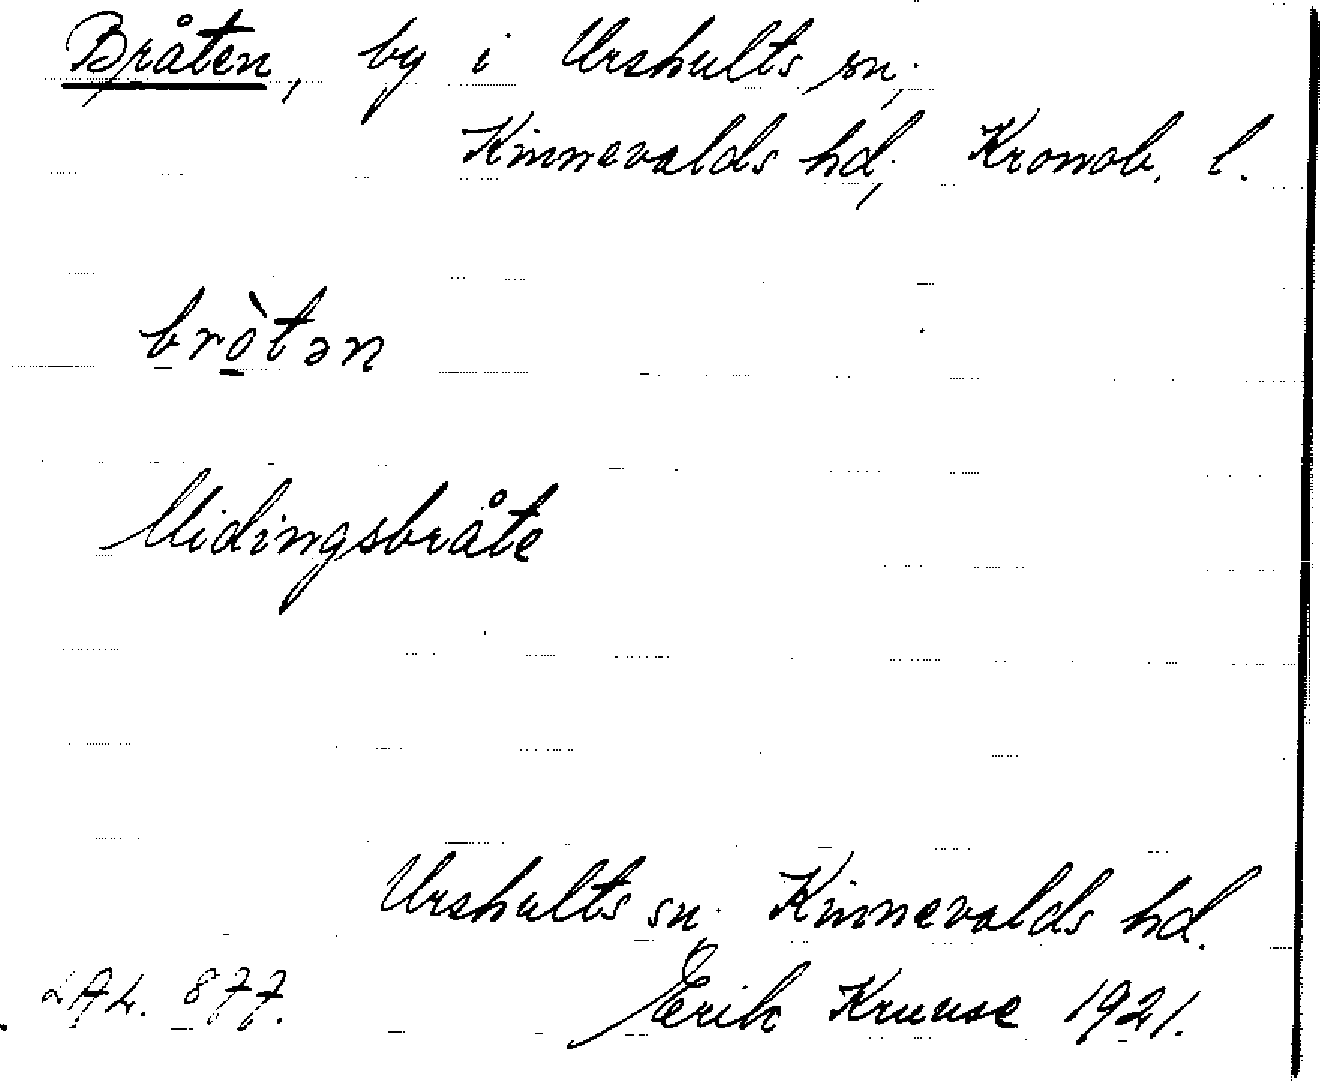 Bråten, by i Urshults sn;
Kinnevalds hd; Kronob. l.
bròtən
Midingsbråte
Urshults sn. Kinnevalds hd.
Erik Kruuse 1921.
LAL. 877.